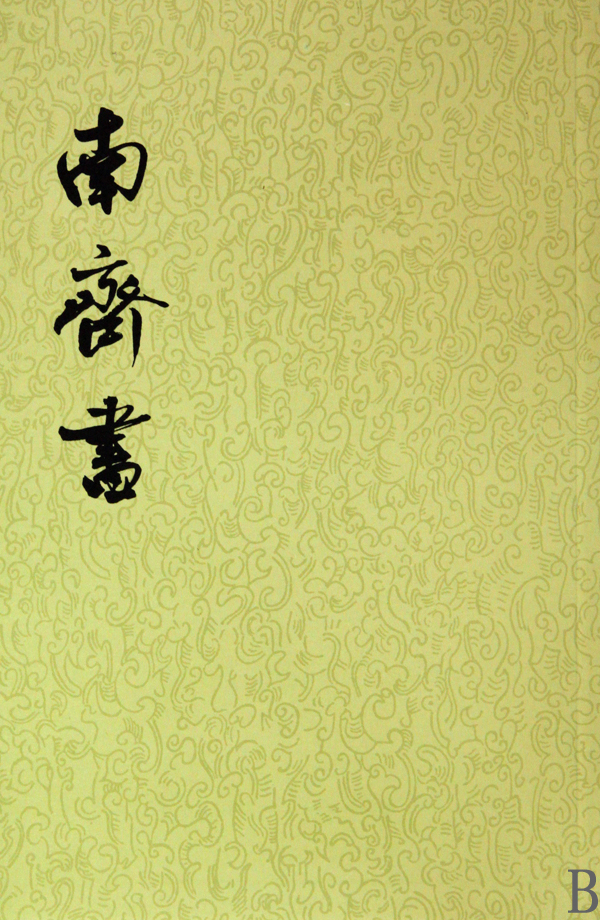 南齊書
B